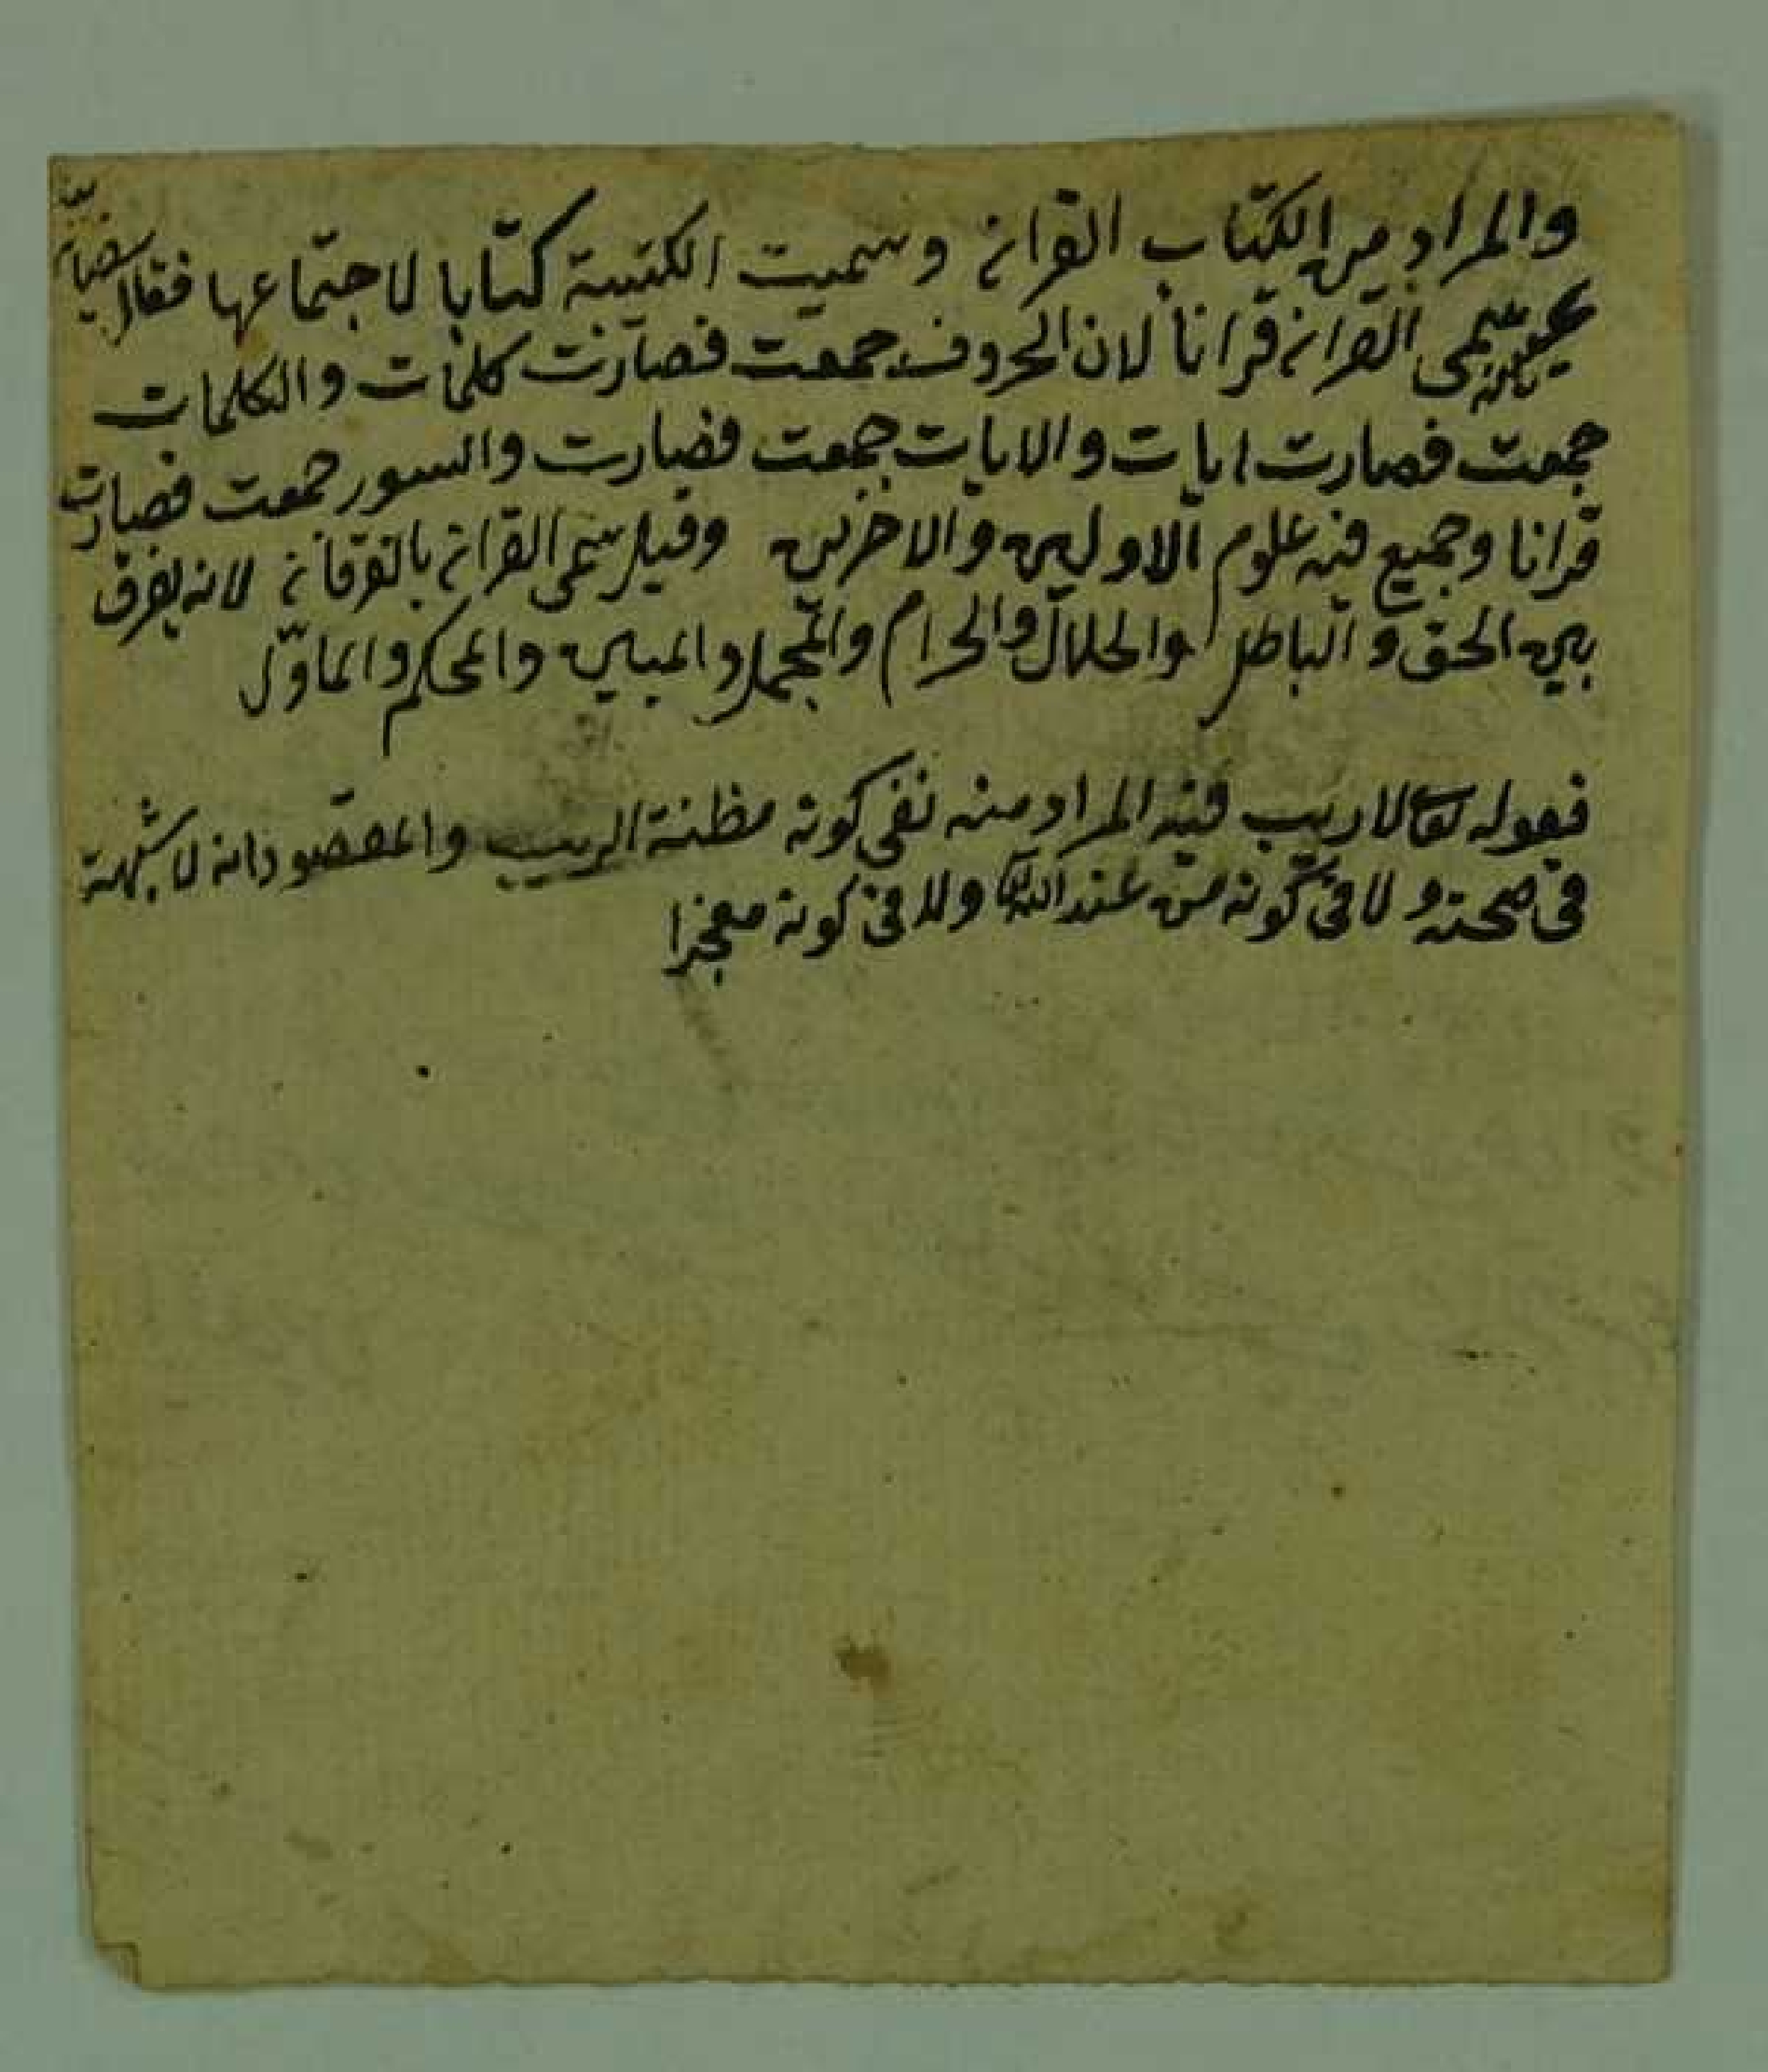 والمراد من الكتاب القران وسميت الكتيبة كتابا لاجتماعها فقال سفيان
سمى القران قرانا لان الحروف جمعت فصارت كلمات والكلمات
جمعت فصارت ايات والايات جمعت فصارت والسور جمعت فصارت
قرانا وجميع فيه علوم الاولين والاخرين وقيل سمى القران بالفرقان لانه يفرق
بين الحق والباطل والحلال والحرام والمجمل والمبين والمحكم والماوّل
فقوله تعالى لاريب فيه المراد منه نفى كونه مظنة الريب والمقصود انه لا شبهة
فى صحته ولا فى كونه من عند الله ولا فى كونه معجزا